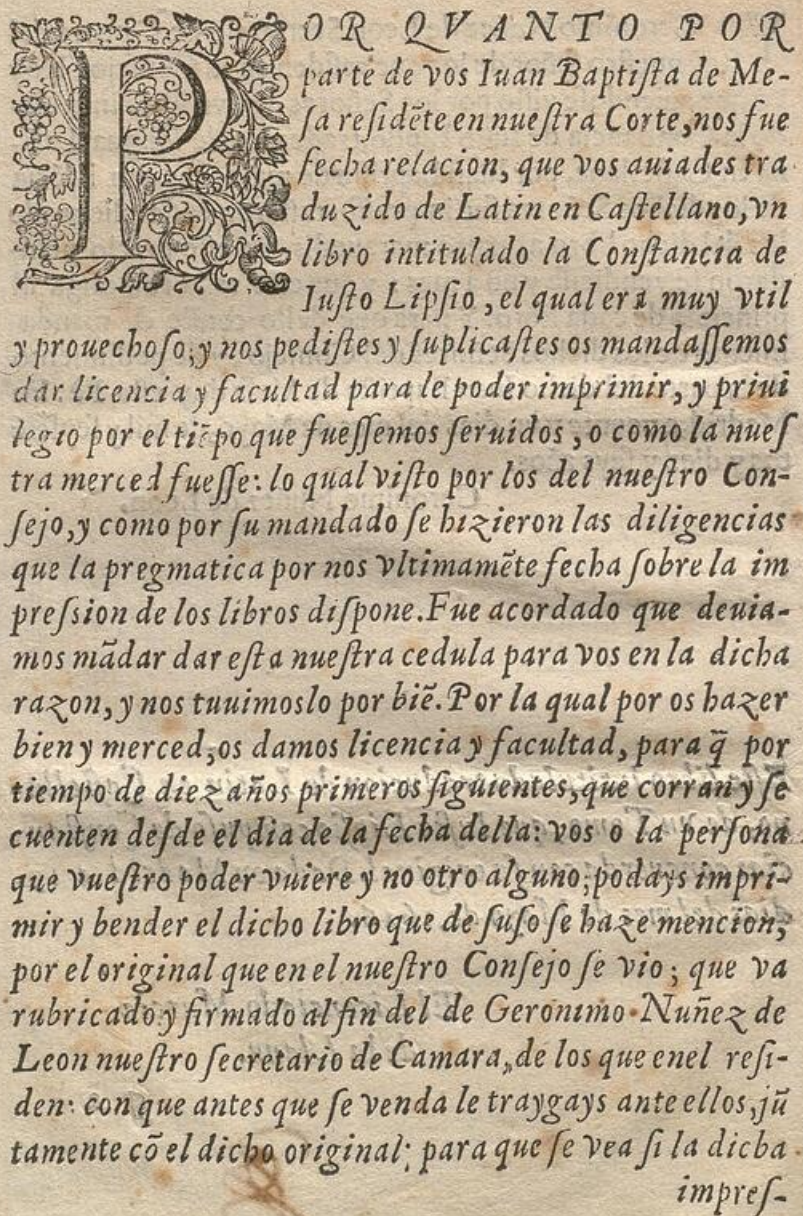 POR QVANTO POR
parte de vos Iuan Baptiſta de Me-
ſa reſidẽte en nueſtra Corte, nos fue
fecha relacion, que vos auiades tra
duzido de Latin en Caſtellano, vn
libro intitulado la Conſtancia de
Iuſto Lipſio, el qual era muy vtil
y prouechoſo; y nos pediſtes y ſuplicaſtes os mandaſſemos
dar licencia y facultad para le poder imprimir, y priui
legio por el tiẽpo que fueſſemos ſeruidos, o como la nueſ
tra merced fueſſe: lo qual viſto por los del nueſtro Con-
ſejo, y como por ſu mandado ſe hizieron las diligencias
que la pregmatica por nos vltimamẽte fecha ſobre la im
preſsion de los libros diſpone. Fue acordado que deuia-
mos mãdar dar eſta nueſtra cedula para vos en la dicha
razon, y nos tuuimoslo por biẽ. Por la qual por os hazer
bien y merced, os damos licencia y facultad, para q̃ por
tiempo de diez años primeros ſiguientes, que corran y ſe
cuenten deſde el dia de la fecha della: vos o la perſona
que vueſtro poder vuiere y no otro alguno; podays impri-
mir y bender el dicho libro que de ſuſo ſe haze mencion,
por el original que en el nueſtro Conſejo ſe vio; que va
rubricado y firmado al fin del de Geronimo Nuñez de
Leon nueſtro ſecretario de Camara, de los que enel reſi-
den: con que antes que ſe venda le traygays ante ellos, jũ
tamente cõ el dicho original; para que ſe vea ſi la dicha
impreſ-